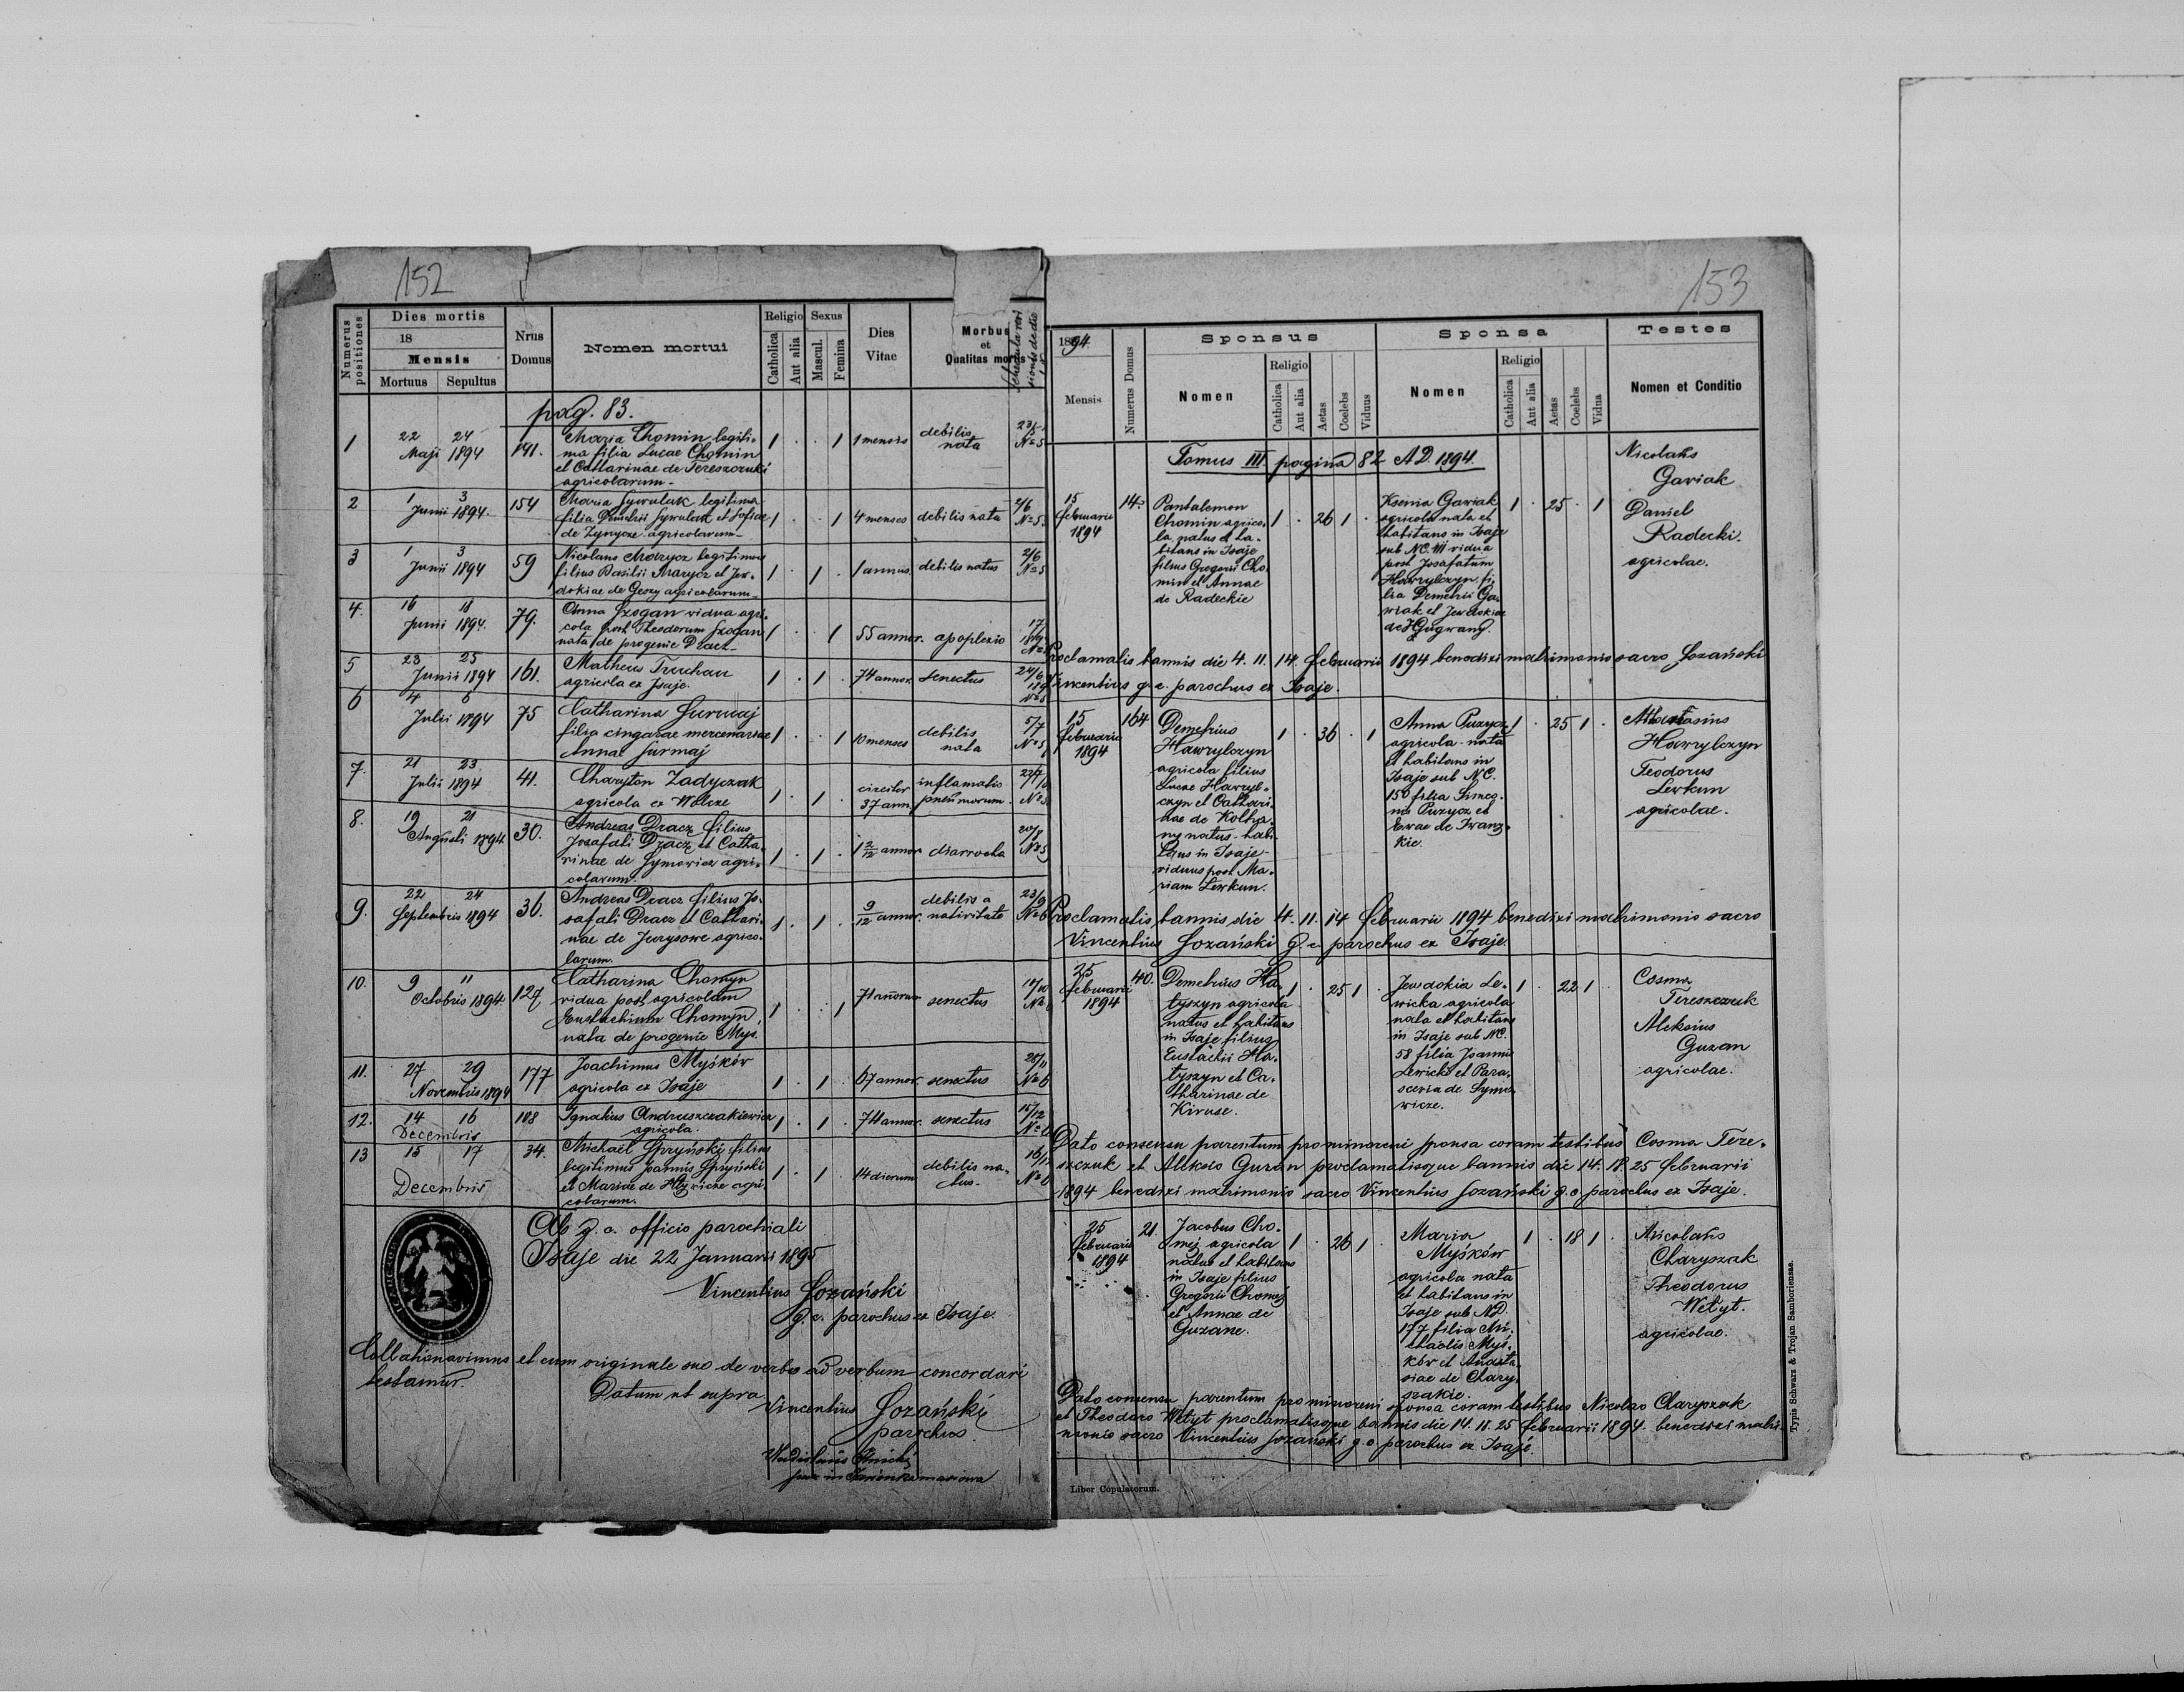 152
Numerus positiones
Dies mortis
18
Mensis
Mortuus Sepultus
Nrus Domus
Nomen mortui
Religio
Catholica
Aut alia
Sexus
Mascul.
Femina
Dies Vitae
Morbus et Qualitas mortis
pag. 83.
1 22 24 Maji 1894 141. Maria Chomin legiti- 1 . . 1 1 mensis debilis nata 23/5 No 5
ma filia Lucae Chomin
et Catharinae de Tereszczuki
agricolarum.
2 1 3 Junii 1894. 154 Maria Sywulak legitima
filia Demetrii Sywulak et Sofiae 1 . . 1 4 menses debilis nata 2/6 No 5
de Zynycze agricolarum
3 1 3 Junii 1894 59 Nicolaus Marycz legitimus
filius Basilii Marycz et Jew- 1 . 1 . 1 annus debilis natus 2/6 No 5
dokiae de Geszy agricolarum
4. 16 18 Junii 1894. 79. Anna Szogan vidua agri-
cola post Theodorum Szogan 1 . . 1 55 annor. apoplexio
nata de progenie Dracz
5 23 25 Junii 1894 161. Matheus Truchan
agricola ex Isaje. 1 . 1 . 74 annor. senectus 24/6
6 4 6 Julii 1894 75 Catharina Surmaj
filia cingarae mercenariae 1 . . 1 10 menses debilis nata 5/7 No 5
Annae Surmaj
7. 21 23 Julii 1894 41. Charyton Zadyczak
agricola ex Wolcze 1 . 1 . circiter 37 ann. inflamatio pneumorum. 22/7 No 5
8. 19 21 Augusti 1894 30. Andreas Dracz filius
Josafati Dracz et Catha- 1 . 1 . 1 2/12 annor diarrocha 20/8 No 5
rinae de Symowicz agri-
colarum.
9. 22 24 Septembris 1894 36. Andreas Dracz filius Jo-
safati Dracz et Cathari- 1 . 1 . 9/12 annor. debilis a nativitate 23/9 No 6
nae de Jurysowe agrico-
larum.
10. 9 11 Octobris 1894 127 Catharina Chomyn
vidua post agricolam 1 . . 1 71 annorum senectus 10/10
Eustachium Chomyn,
nata de progenie Mejs.
11. 27 29 Novembris 1894 177 Joachimus Myśków
agricola ex Isaje 1 . 1 . 67 annor. senectus 28/11 No 6
12. 14 16 Decembris 188 Ignatius Andruszczakiewicz 1 . 1 . 74 annor. senectus 15/12 No 6
agricola.
13 15 17 Decembris 34. Michaël Spryński filius
legitimus Joannis Spryński 1 . 1 . 14 dierum debilis na- tus. 16/12 No 6
et Mariae de Hrywicze agri-
colarum.
Ab g. c. officio parochiali
Isaje die 22 Januarii 1895
Vincentius Łozański
g. c. parochus ex Isaje.
Collationavimus et cum originale suo de verbo ad verbum concordari
testamur.
Datum ut supra
Vincentius Łozański
parochus.
153
1894.
Mensis
Numerus Domus
Sponsus
Nomen
Religio
Catholica
Aut alia
Aetas
Coelebs
Viduus
Sponsa
Nomen
Religio
Catholica
Aut alia
Aetas
Coelebs
Vidua
Testes
Nomen et Conditio
Tomus III. pagina 82 AD. 1894.
15 Februarii 1894 14.
Pantalemon
Chomin agrico- 1 . 26 1 .
la natus et ha-
bitans in Isaje
filius Gregorii Cho-
min et Annae
de Radeckie
Ksenia Gawiak 1 . 25 . 1
agricola nata et
habitans in Isaje
sub NC. 111 vidua
post Josafatum
Hawrylczyn fi-
lia Demetrii Ga-
wiak et Jewdokiae
Nicolaus
Gaviak
Daniel
Radecki.
agricolae.
Proclamatis bannis die 4. 11. 14. Februarii 1894 benedixi matrimonio sacro Łozański
Vincentius g. c. parochus ex Isaje.
15 Februarii 1894 164
Demetrius 1 . 36 . 1
Hawrylczyn
agricola filius
Lucae Hawryl-
czyn et Cathari-
nae de Kolha-
ny natus habi-
tans in Isaje
viduus post Ma-
riam Lewkun.
Anna Puzycz 1 . 25 1 .
agricola nata
et habitans in
Isaje sub NC.
150 filia Simeo-
nis Puzycz et
Ewae de Iwanz-
kie.
Athanasius
Hawrylczyn
Teodorus
Lewkun
agricolae.
Proclamatis bannis die 4. 11. 14 Februarii 1894 benedixi matrimonio sacro
Vincentius Łozański g. c. parochus ex Isaje.
25 Februarii 1894 40.
Demetrius Ha- 1 . 25 1 .
tyszyn agricola
natus et habitans
in Isaje filius
Eustachii Ha-
tyszyn et Ca-
tharinae de
Kiruse.
Jewdokia Le- 1 . 22 1 .
wicka agricola
nata et habitans
in Isaje sub NC.
58 filia Joannis
Lewicki et Para-
sceviae de Symo-
wicze.
Cosma
Tereszczuk
Aleksius
Guzan
agricolae.
Dato consensu parentum pro minoreni sponsa coram testibus Cosma Tere-
szczuk et Aleksio Guzan proclamatisque bannis die 14. 18. 25 Februarii
1894 benedixi matrimonio sacro Vincentius Łozański g. c. parochus ex Isaje.
25 Februarii 1894 21.
Jacobus Cho-
mej agricola 1 . 26 1 .
natus et habitans
in Isaje filius
Gregorii Chomej
et Annae de
Guzane.
Maria 1 . 18 1 .
Myśków
agricola nata
et habitans in
Isaje sub ND.
177 filia Mi-
chaëlis Myś-
ków et Anasta-
siae de Chary-
szakie.
Nicolaus
Charyszak
Theodorus
Wetyt.
agricolae.
Dato consensu parentum pro minoreni sponsa coram testibus Nicolao Charyszak
et Theodoro Wetyt proclamatisque bannis die 14. 18. 25 Februarii 1894. benedixi matri-
monio sacro Vincentius Łozański g. c. parochus ex Isaje.
Liber Copulatorum.
Typis Schwarz & Trojan Samboriensae.